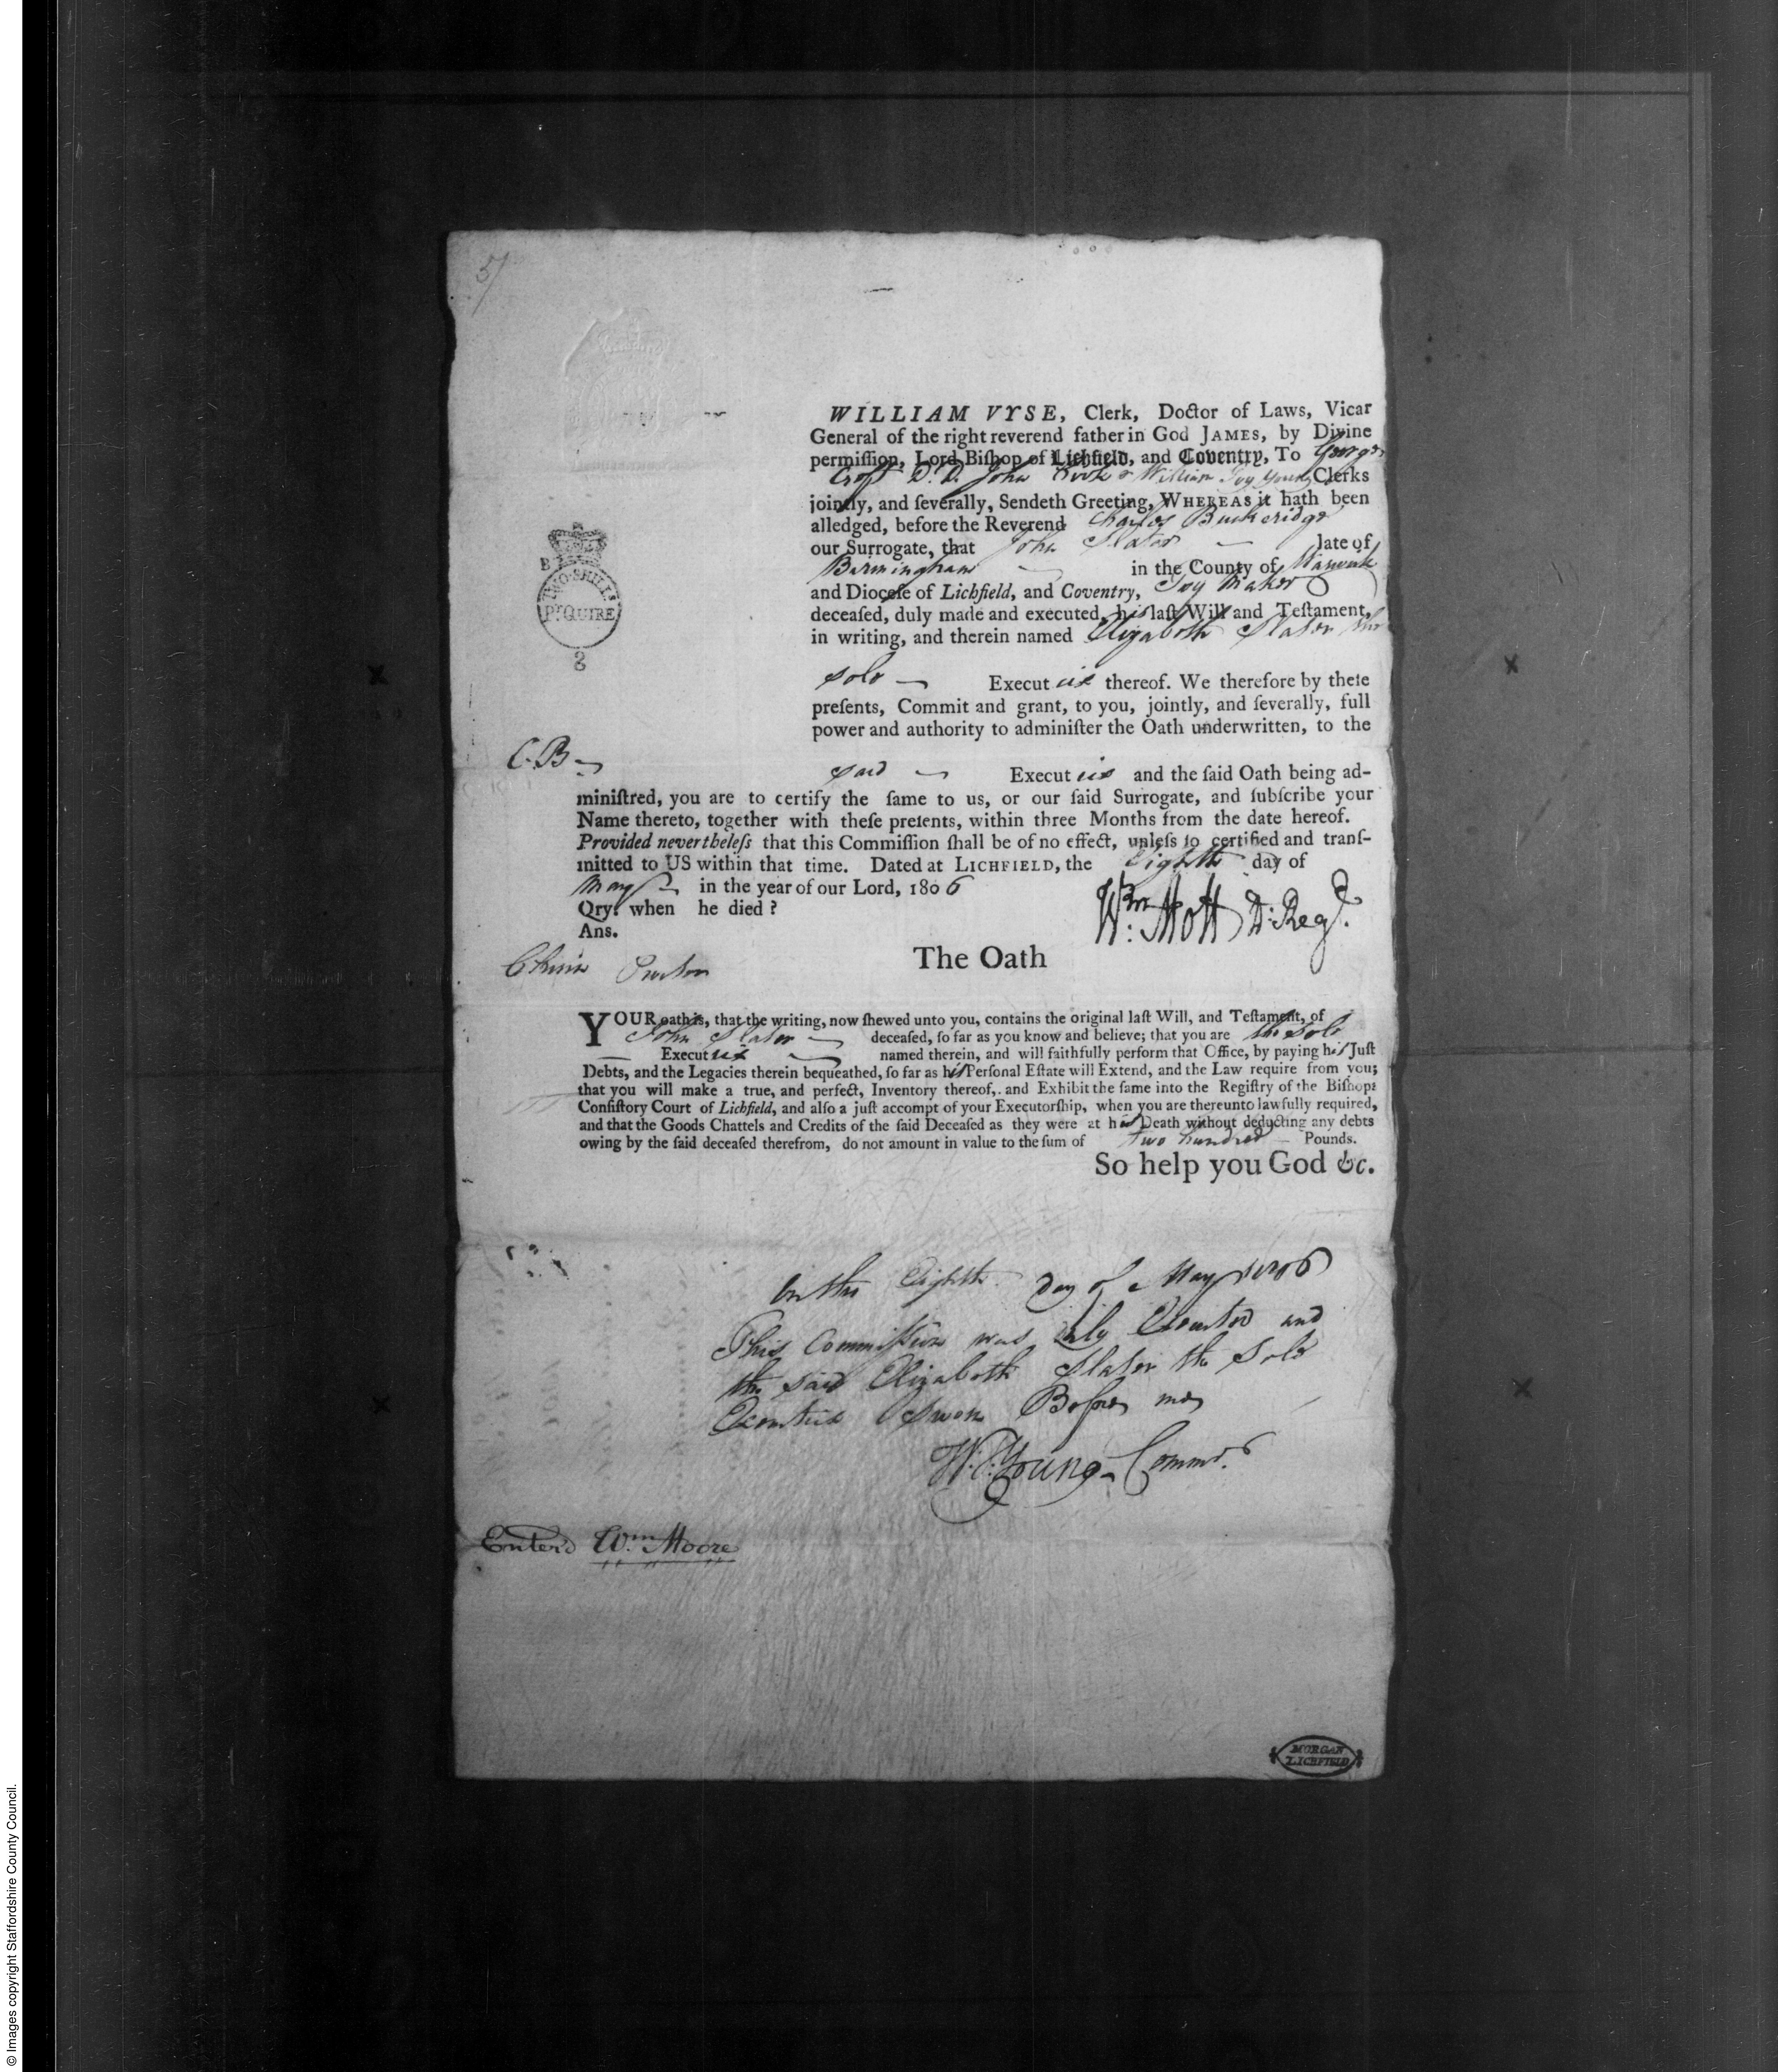 5/
WILLIAM VYSE, Clerk, Doctor of Laws, Vicar
General of the right reverend father in God JAMES, by Divine
permiſſion, Lord Biſhop of Lichfield, and Coventry, To George
Croft D.D. John Cook & William Toy Young Clerks
jointly, and ſeverally, Sendeth Greeting, WHEREAS it hath been
alledged, before the Reverend Charles Buckeridge
our Surrogate, that John Slater late of
Birmingham in the County of Warwick
and Dioceſe of Lichfield, and Coventry, Toy Maker
deceaſed, duly made and executed, his laſt Will and Teſtament,
in writing, and therein named Elizabeth Slater the
B
TWO·SHILLS
Pr. QUIRE
8
sole Execut rix thereof. We therefore by theſe
preſents, Commit and grant, to you, jointly, and ſeverally, full
power and authority to adminiſter the Oath underwritten, to the
C.B
said Execut rix and the ſaid Oath being ad-
miniſtred, you are to certify the ſame to us, or our ſaid Surrogate, and ſubſcribe your
Name thereto, together with theſe preſents, within three Months from the date hereof.
Provided nevertheleſs that this Commiſſion ſhall be of no effect, unleſs ſo certified and tranſ-
mitted to US within that time. Dated at LICHFIELD, the Eighth day of
May in the year of our Lord, 1806
Qry. when he died?
Wm: Mott D: Regr.
Ans.
The Oath
YOUR oath is, that the writing, now ſhewed unto you, contains the original laſt Will, and Teſtament, of
John Slater deceaſed, ſo far as you know and believe; that you are the Sole
Execut rix named therein, and will faithfully perform that Office, by paying his Juſt
Debts, and the Legacies therein bequeathed, ſo far as his Perſonal Eſtate will Extend, and the Law require from you;
that you will make a true, and perfect, Inventory thereof,. and Exhibit the ſame into the Regiſtry of the Biſhops
Conſiſtory Court of Lichfield, and alſo a juſt accompt of your Executorſhip, when you are thereunto lawfully required,
and that the Goods Chattels and Credits of the ſaid Deceaſed as they were at his Death without deducting any debts
owing by the ſaid deceaſed therefrom, do not amount in value to the ſum of two hundred Pounds.
So help you God &c.
On the Eighth day of May 1806
This Commiſsion was duly Executed and
the said Elizabeth Slater the Sole
Executrix Sworn Before me
W. T. Young Commr.
Enterd Wm. Moore
MORGAN
LICHFIELD
© Images copyright Staffordshire County Council.